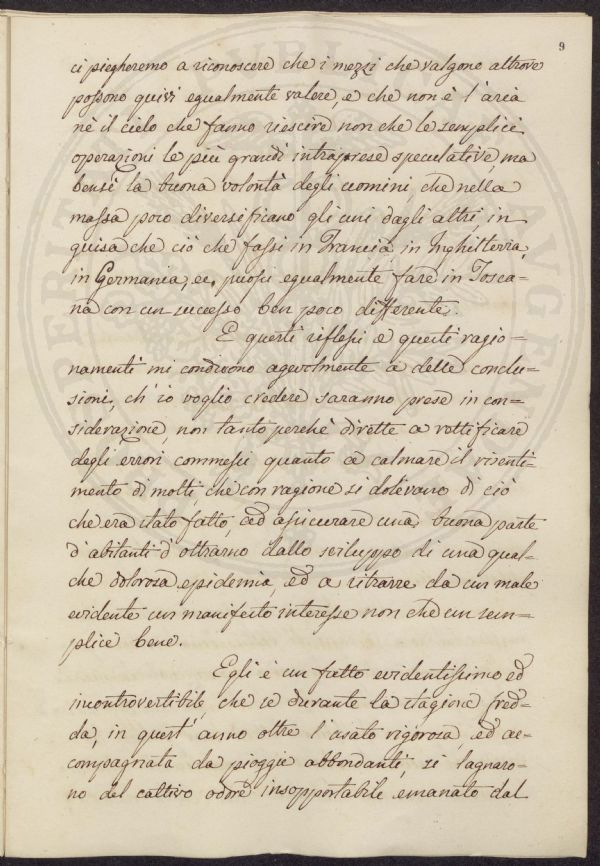 9
ci piegheremo a riconoscere che i mezzi che valgono altrove
possono quivi egualmente valere, e che non è l'aria
nè il cielo che fanno riescire non che le semplici
operazioni le più grandi intraprese speculative, ma
bensì la buona volontà degli uomini, che nella
massa poco diversificano gli uni dagli altri in
guisa che ciò che fassi in Francia in Inghilterra,
in Germania, ec. puossi egualmente fare in Tosca-
na con un successo ben poco differente.
E questi riflessi e questi ragio-
namenti mi conducono agevolmente a delle conclu-
sioni, ch'io voglio credere saranno prese in con-
siderazione, non tanto perchè dirette a rettificare
degli errori commessi quanto a calmare il risenti-
mento di molti, che con ragione si dolevano di ciò
che era stato fatto, ed assicurare una buona parte
d'abitanti d'oltrarno dallo sviluppo di una qual-
che dolorosa epidemia, ed a ritrarre da un male
evidente un manifesto interesse non che un sem-
plice bene.
Egli è un fatto evidentissimo ed
incontrovertibile, che se durante la stagione fred-
da, in quest'anno oltre l'usato rigorosa, ed ac-
compagnata da pioggie abbondanti, si lagnaro-
no del cattivo odore insopportabile emanato dal